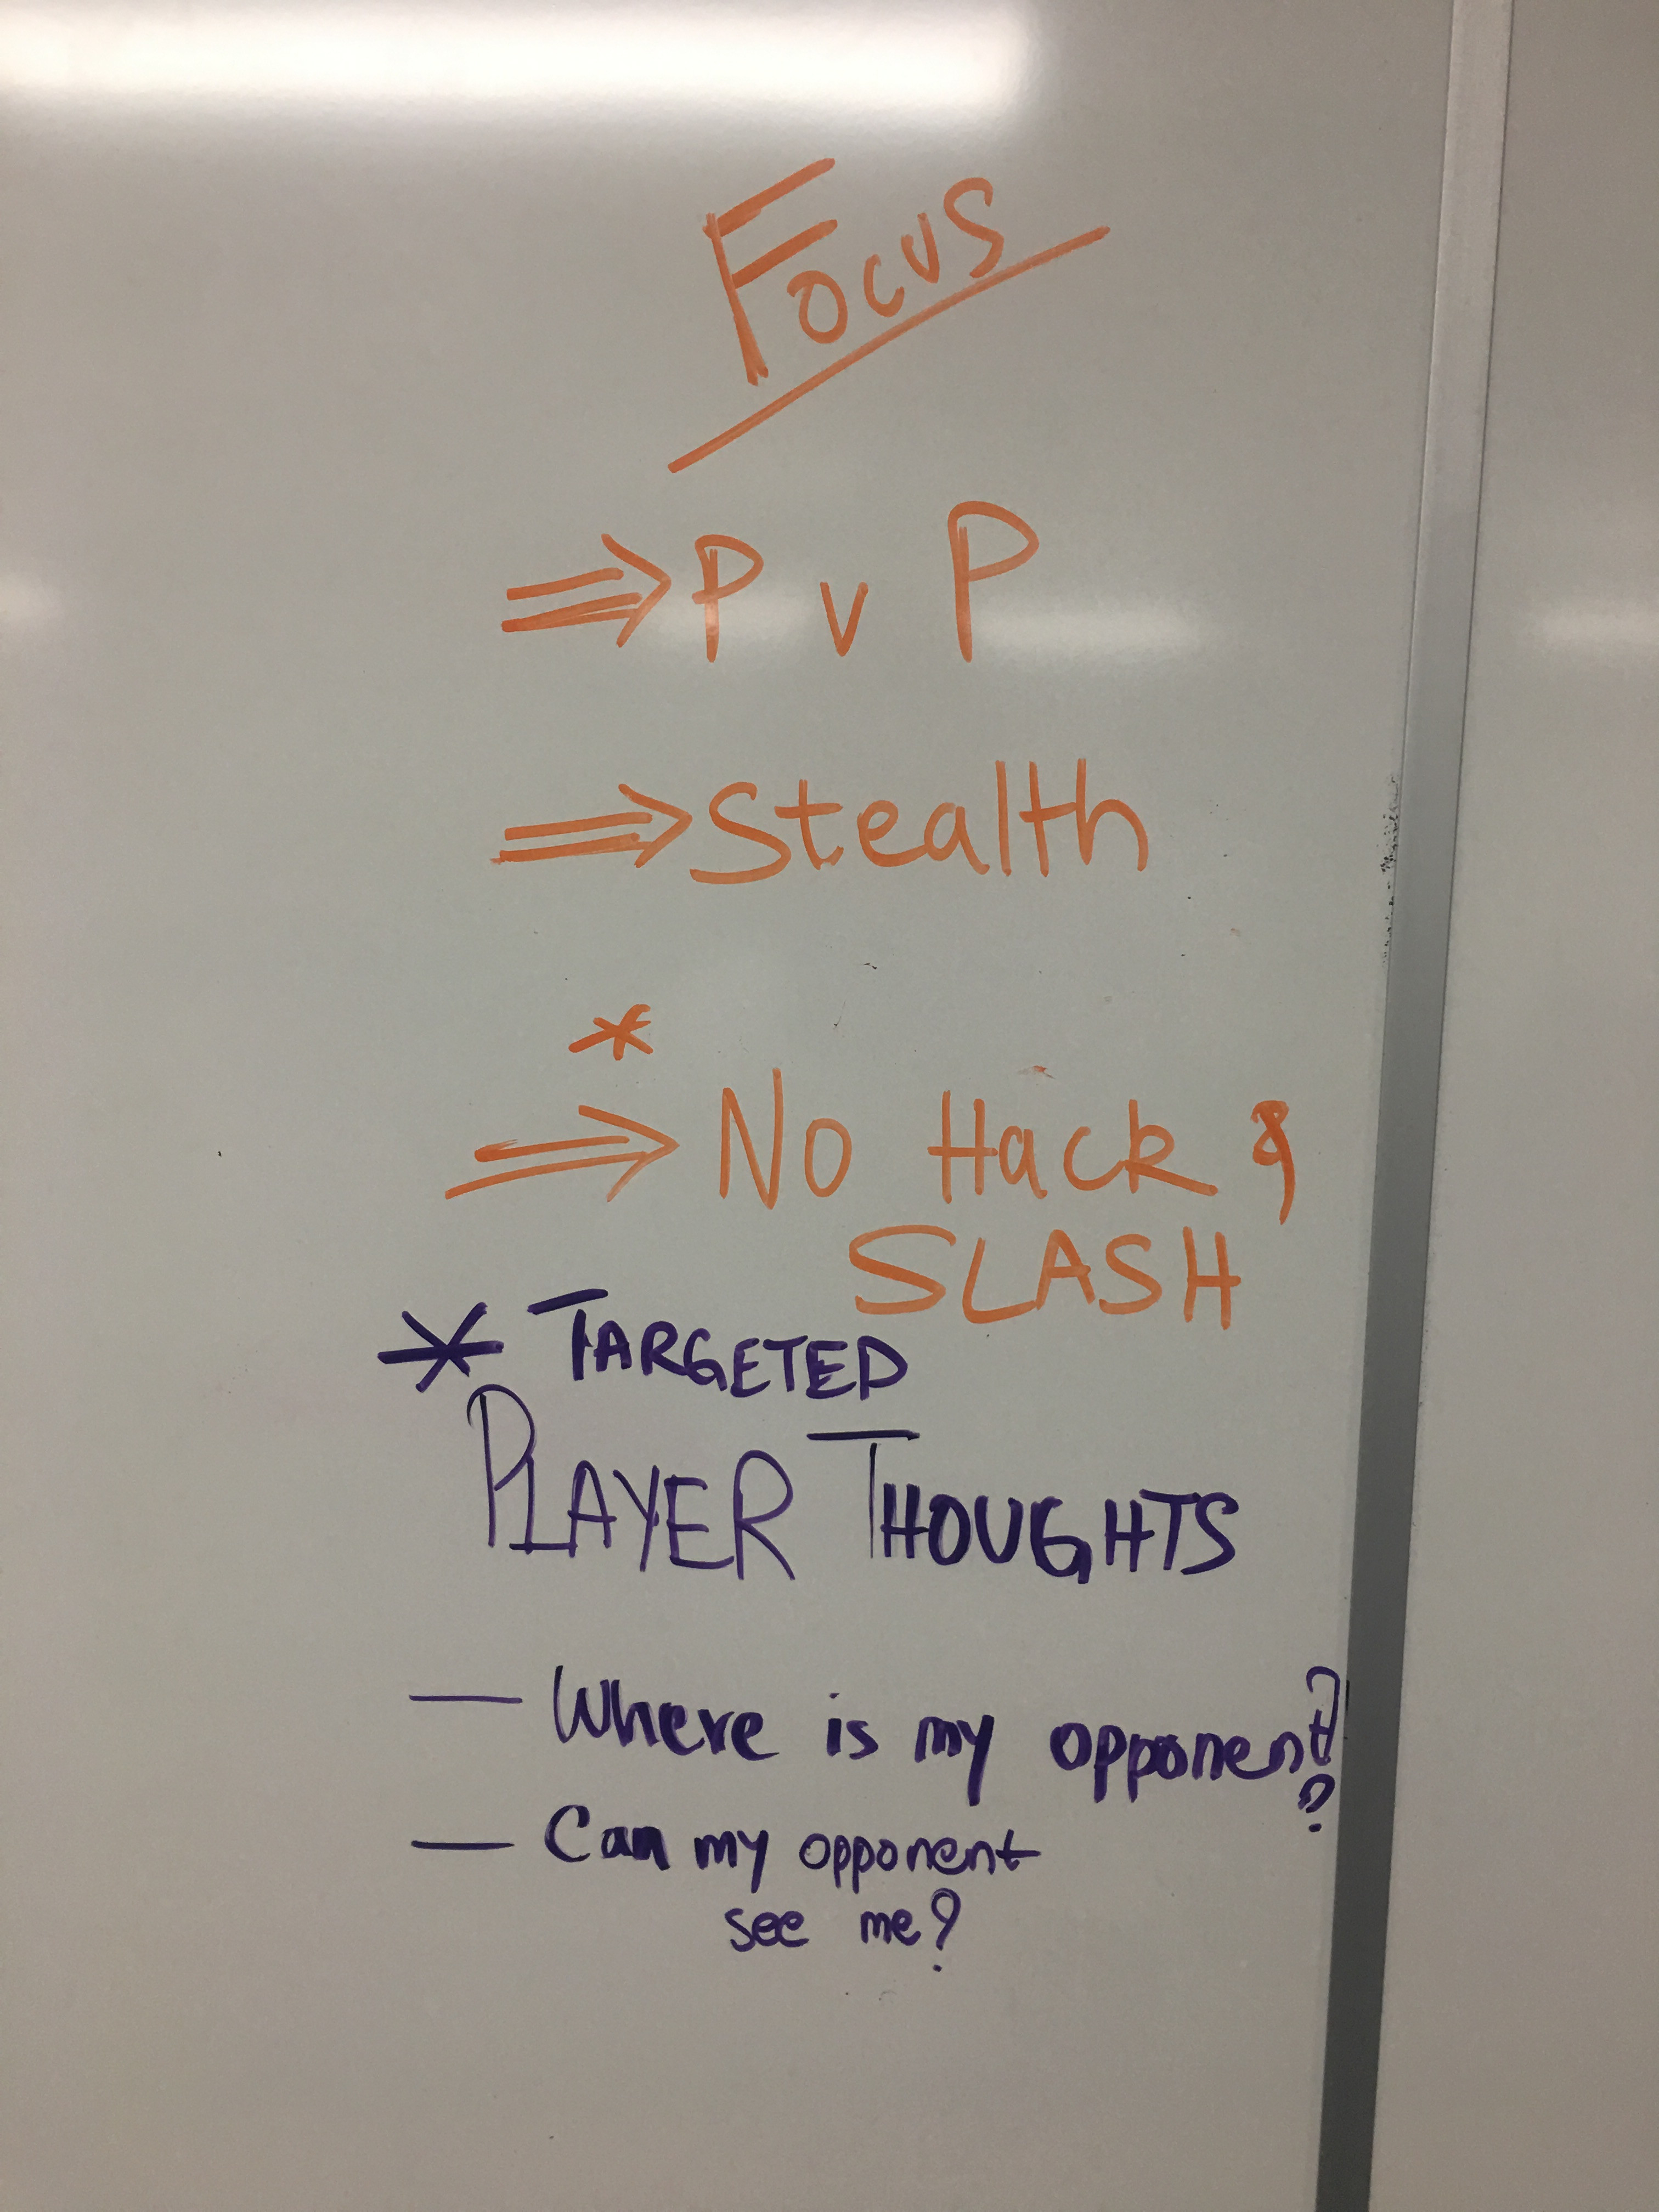 Focus
⇒ P v P
⇒ Stealth
*
⇒ No Hack &
SLASH
* TARGETED
PLAYER THOUGHTS
— Where is my opponent?
— Can my opponent
see me?